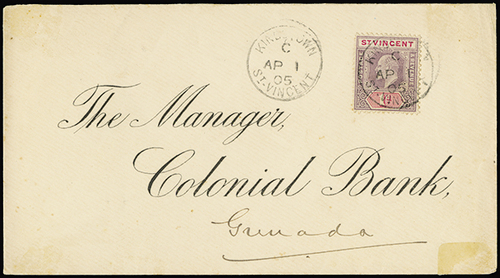 KINGSTOWN
C
AP 1
05
ST. VINCENT
ST VINCENT
POSTAGE
REVENUE
C
AP 1
05
The Manager,
Colonial Bank,
Grenada